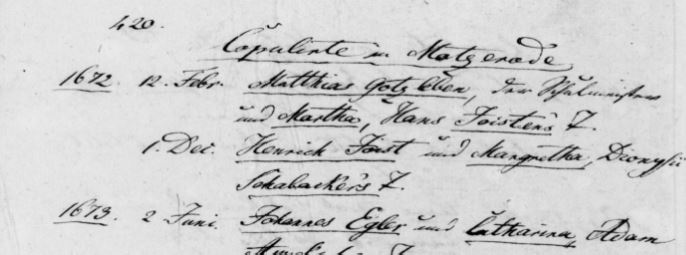 420.
Copulirte in Matzerode
1672. 12. Febr. Matthias Gotzleben, der Schulminister
und Martha, Hans Foistens T.
1. Dec. Henrich Foist und Margretha, Dionysii
Schabacker's T.
1673. 2 Juni. Johannes Egler und Catharina, Adam
T.